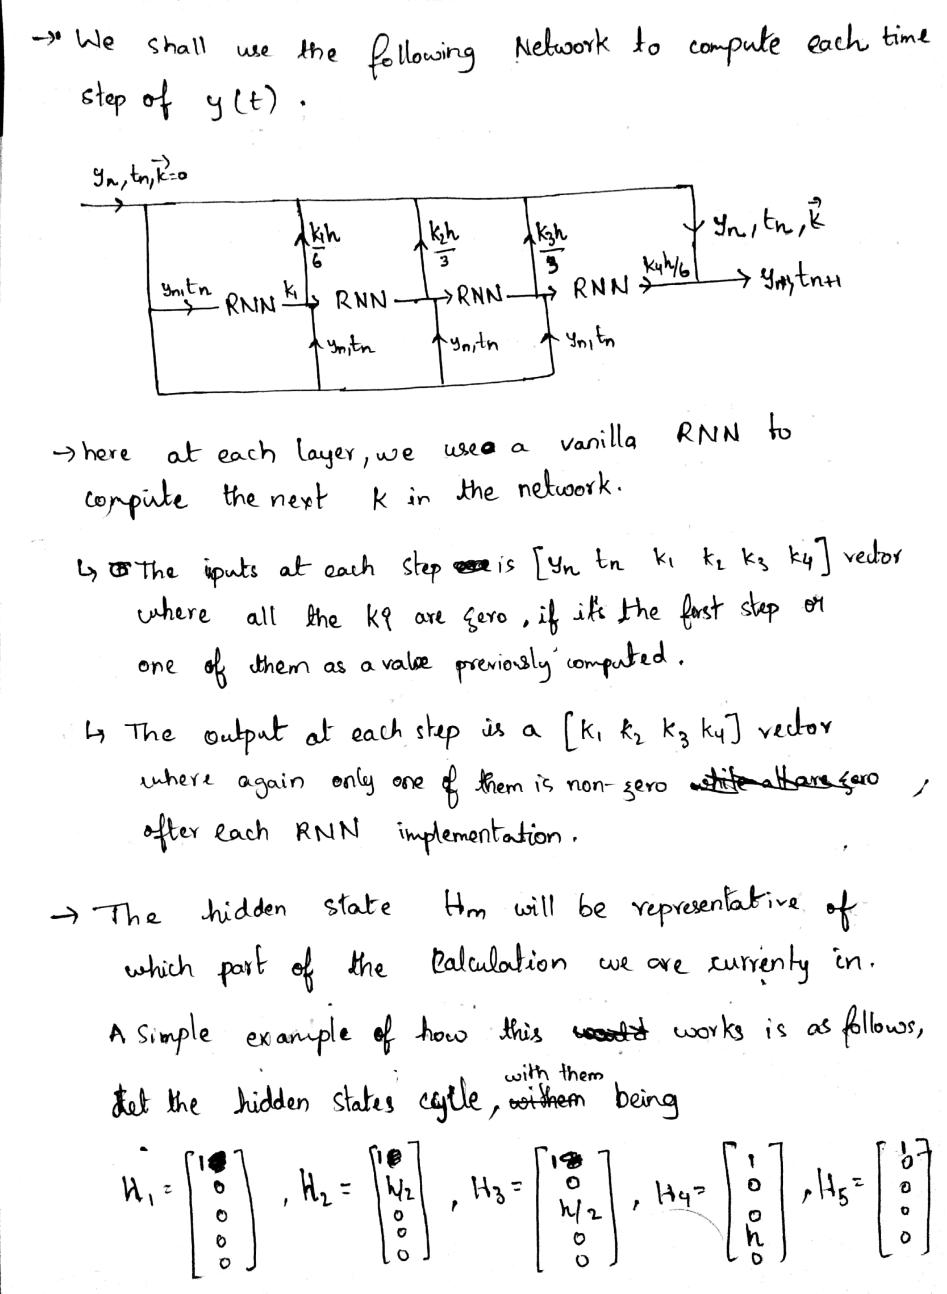 → We shall use the following Network to compute each time
step of y(t).
yn, tn, k⃗=0
k1h/6
k2h/3
k3h/3
yn, tn, k⃗
yn, tn
RNN
k1
RNN
RNN
RNN
k4h/6
yn+1, tn+1
yn, tn
yn, tn
yn, tn
→ here at each layer, we use a vanilla RNN to
compute the next k in the network.
↳ The iputs at each step is [yn tn k1 k2 k3 k4] vector
where all the k9 are zero, if it's the first step or
one of them as a value previously computed.
↳ The output at each step is a [k1 k2 k3 k4] vector
where again only one of them is non-zero,
after each RNN implementation.
→ The hidden state Hm will be representative of
which part of the Calculation we are currenty in.
A simple example of how this works is as follows,
Let the hidden states cycle, with them being
H1 = [1 0 0 0 0], H2 = [1 h/2 0 0 0], H3 = [1 0 h/2 0 0], H4 = [1 0 0 h 0], H5 = [1 0 0 0 0]